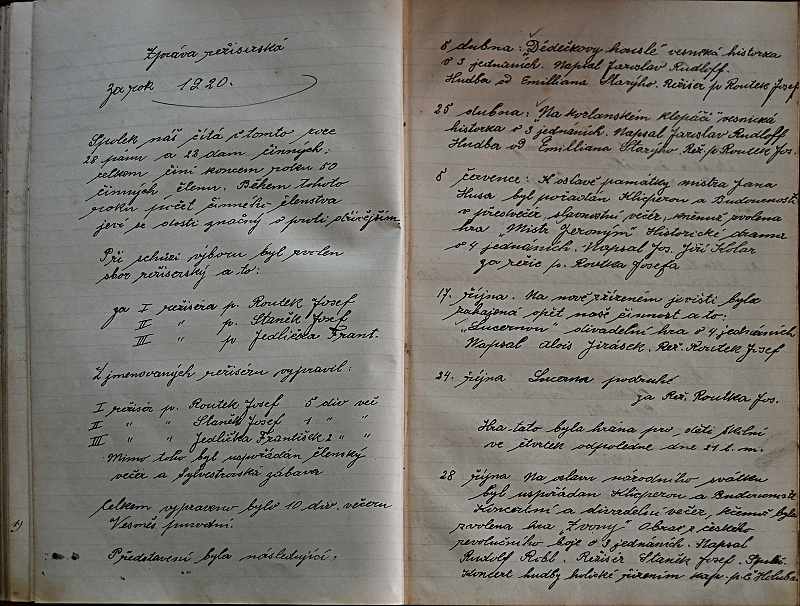 Zpráva režisérská
Za rok 1920.
Spolek náš čítá v tomto roce
28 pánů a 22 dam činných;
celkem činí koncem roku 50
činných členů. Během tohoto
roku počet činného členstva
jeví se dosti značný o proti dřívějším
Při schůzi výboru byl zvolen
sbor režisérský a to:
za I režiséra p. Routek Josef
II " p. Staněk Josef
III " p Jedlička Frant.
Z jmenovaných režisérů vypravil:
I režisér p. Routek Josef 5 div več
II " " Staněk Josef 1 " "
III " " Jedlička František 2 " "
Mimo toho byl uspořádán členský
večer a Sylvestrovská zábava
Celkem vypraveno bylo 10 div. večerů
Vesměs původní.
Představení byla následující.
5 dubna: Dědečkovy housle vesnická historka
o 3 jednáních. Napsal Jaroslav Rudloff.
Hudba od Emilliana Starýho. Režisér p Routek Josef
25 dubna: "Na kvclanském klepáči" vesnická
historka o 3 jednáních. Napsal Jaroslav Rudloff
Hudba od Emilliana Starýho. Rež. p. Routek Jos.
5 července: K oslavě památky mistra Jana
Husa byl pořádán Klicperou a Budoucností
v předvečer, slavnostní večer, k němuž zvolena
hra "Mistr Jeroným" Historické drama
o 4 jednáních. Napsal Jos. Jiří Kolar
za režie p. Routka Josefa
17. října. Na nově zřízeném jevišti byla
zahájena opět naše činnost a to:
"Lucernou" divadelní hra o 4 jednáních
Napsal Alois Jirásek. Rež. Routek Josef
24. října Lucerna podruhé
za Rež. Routka Jos.
Hra tato byla hrána pro děti školní
ve čtvrtek odpoledne dne 21 t. m.
28 října Na oslavu národního svátku
byl uspořádán Klicperou a Budoucností
Koncertní a divadelní večer, k čemuž byla
zvolena hra "Zvony" Obraz z českého
revolučního boje o 3 jednáních. Napsal
Rudolf Robl. Režisér Staněk Josef.
Koncert hudby holické řízením kap. p. Č Holuba.